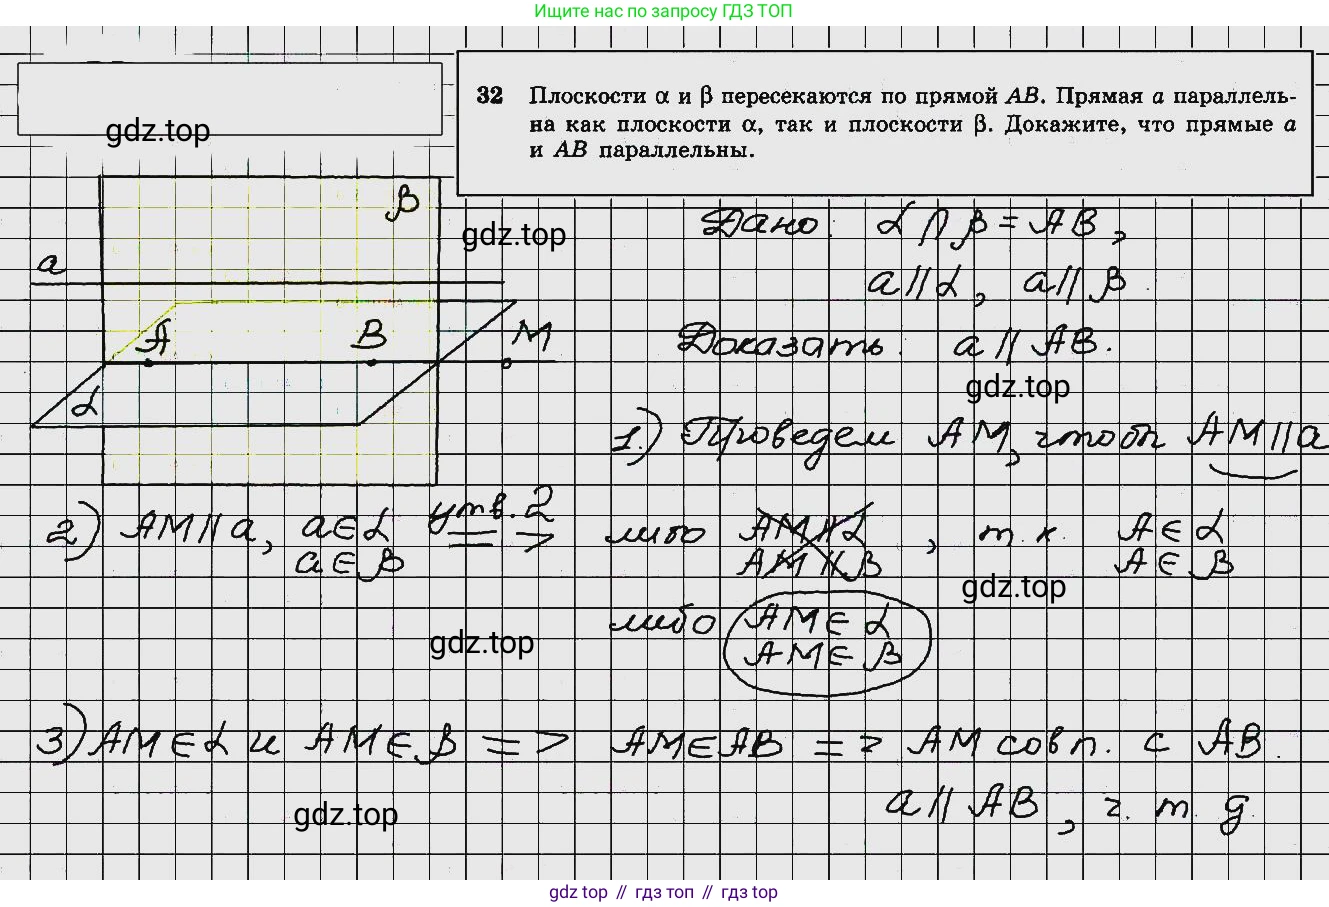 Ищите нас по запросу ГДЗ ТОП
32 Плоскости α и β пересекаются по прямой AB. Прямая a параллель-
на как плоскости α, так и плоскости β. Докажите, что прямые a
и AB параллельны.
gdz.top
β
gdz.top
Дано: α ∩ β = AB,
a
a || α, a || β.
A B M
Доказать: a || AB.
gdz.top
α
1.) Проведем AM, чтобы AM || a
2) AM || a, a ∈ α утв. 2 => либо AM || α, т.к. A ∈ α
a ∈ β AM || β A ∈ β
gdz.top
либо AM ∈ α
gdz.top
AM ∈ β
3) AM ∈ α и AM ∈ β => AM ∈ AB => AM совп. с AB.
gdz.top
a || AB, ч.т.д.
gdz top // гдз топ // gdz top